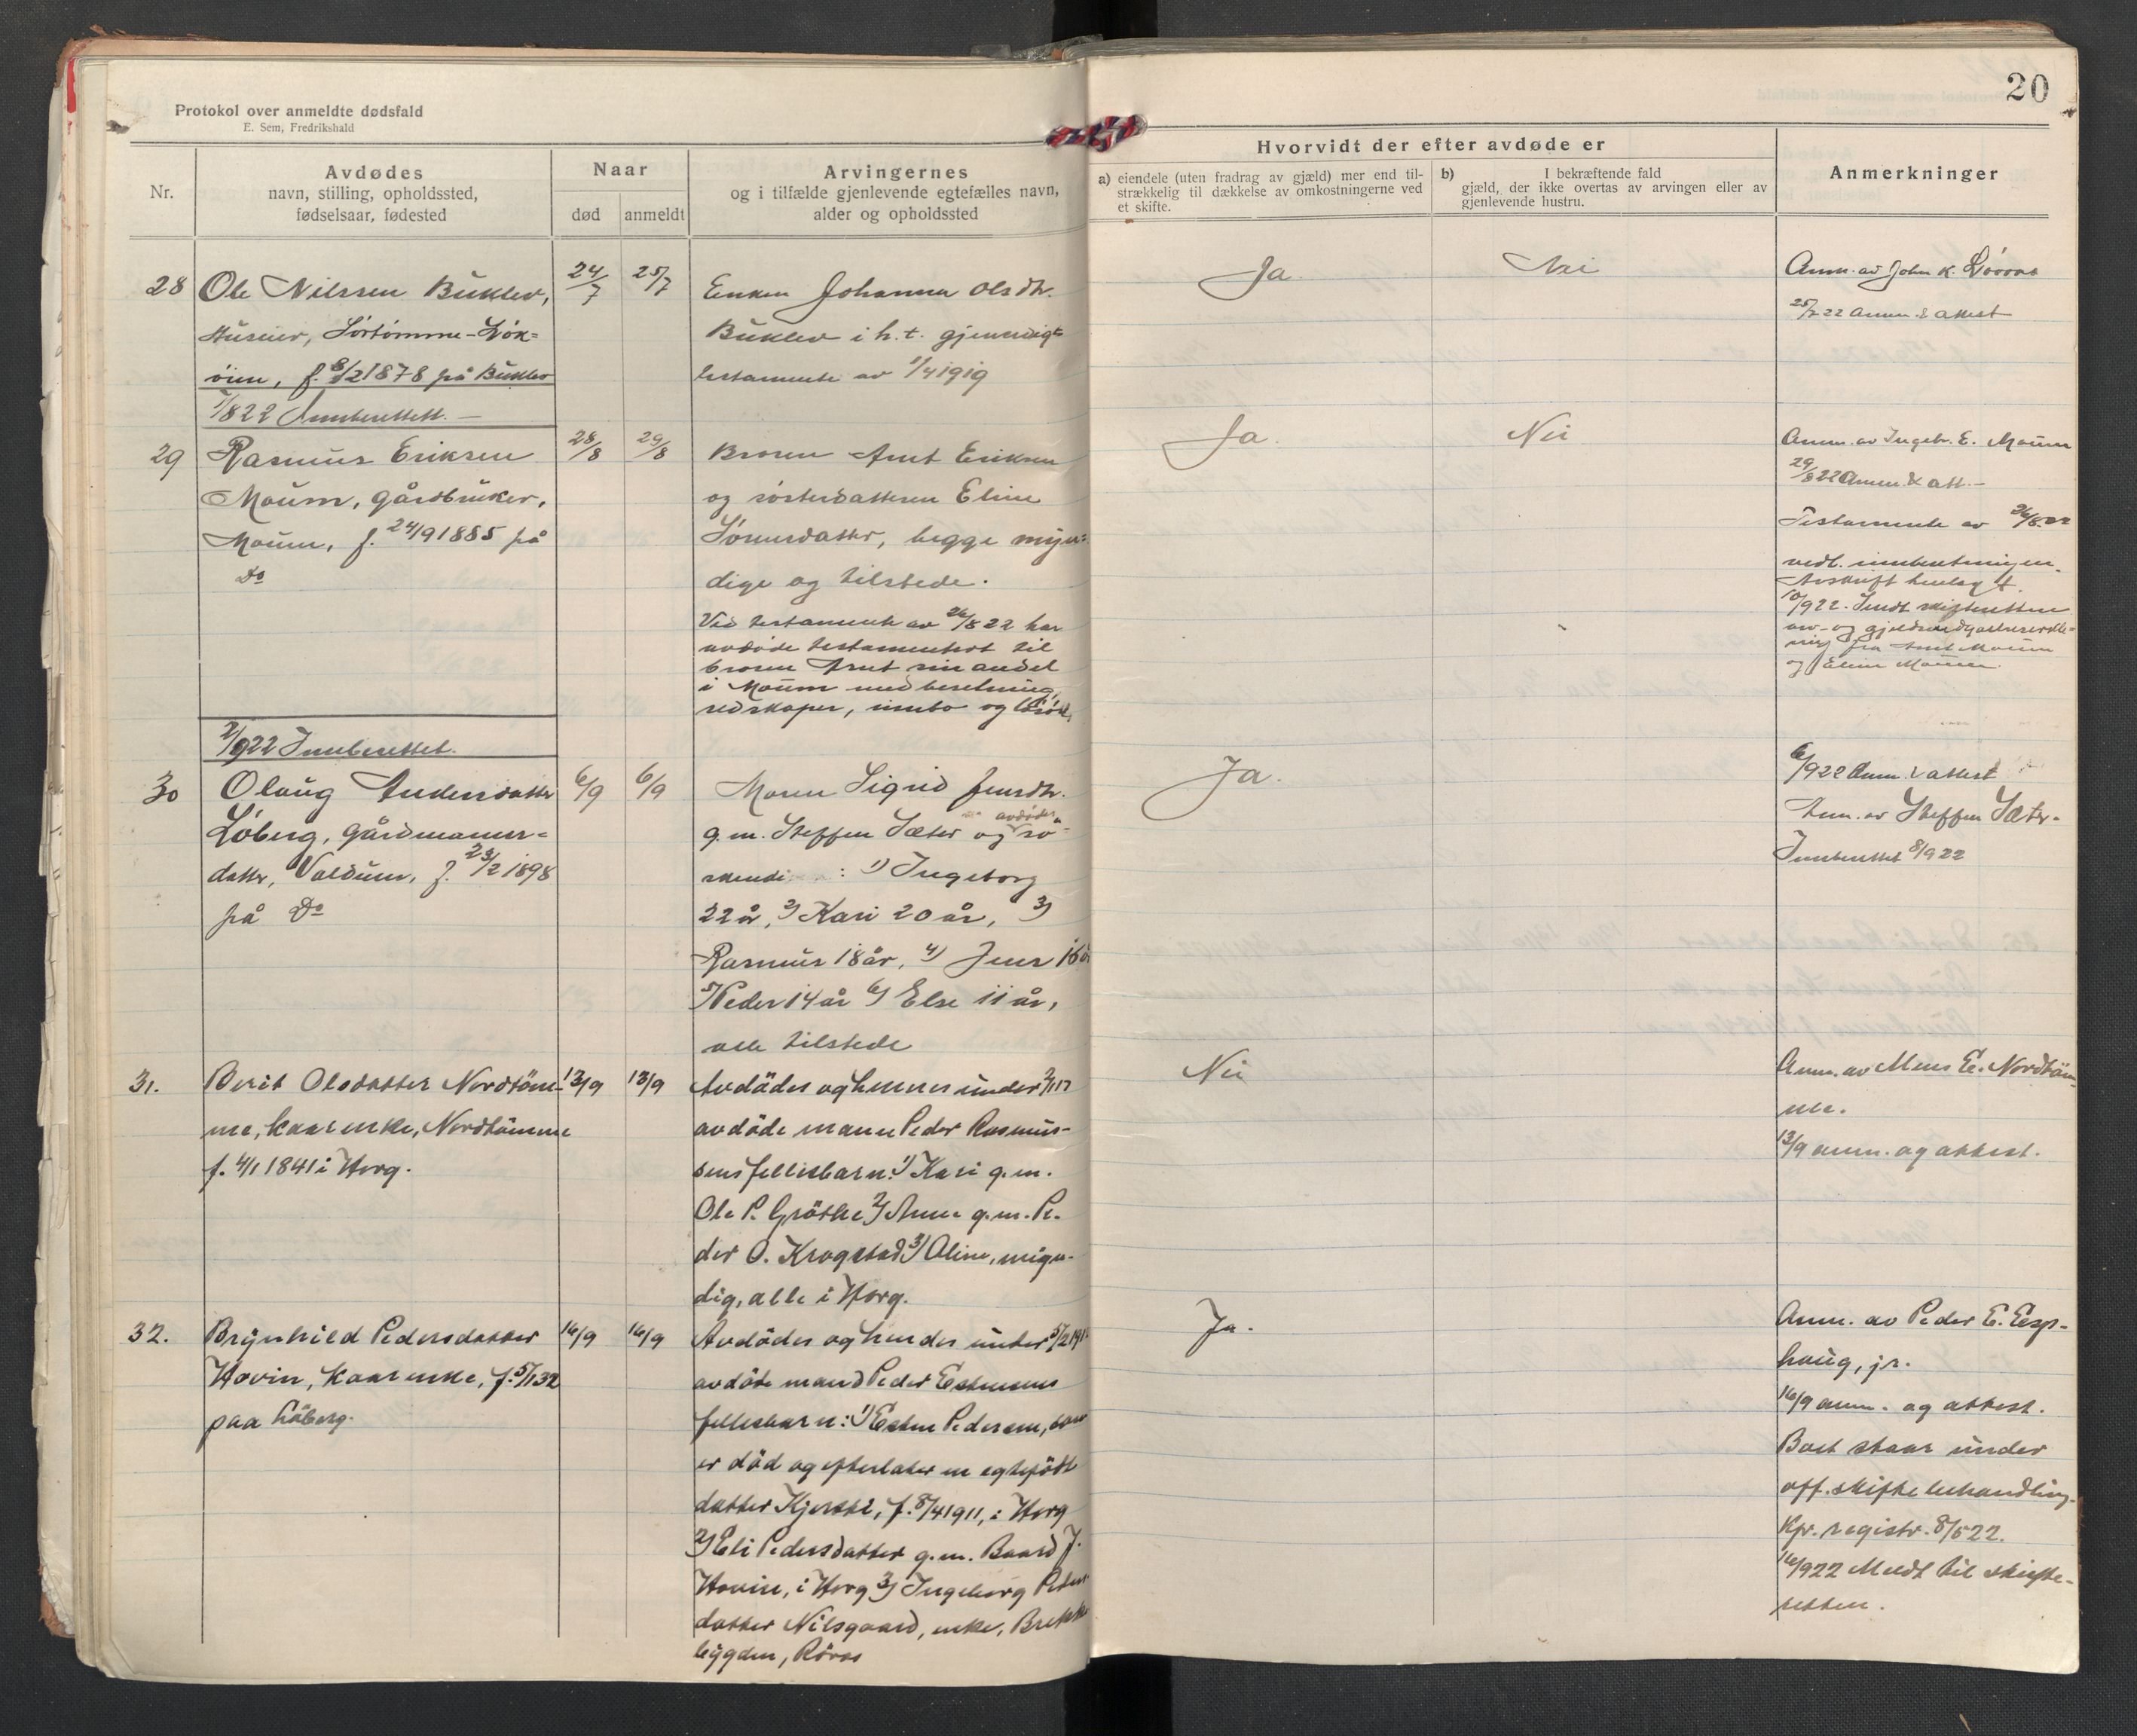 20
Protokol over anmeldte dødsfald
E. Sem, Fredrikshald
Nr.
Avdødes
navn, stilling, opholdssted,
fødselsaar, fødested
Naar
død
anmeldt
Arvingernes
og i tilfælde gjenlevende egtefælles navn,
alder og opholdssted
Hvorvidt der efter avdøde er
a) eiendele (uten fradrag av gjæld) mer end til-
strækkelig til dækkelse av omkostningerne ved
et skifte.
b) I bekræftende fald
gjæld, der ikke overtas av arvingen eller av
gjenlevende hustru.
Anmerkninger
28
Ole Nilssen Buklev,
Huseier, Sørtømme-
f. 8/2 1878 på Buklev
1/8 22 Innberettet.
24/7
25/7
Enken Johanna Olsdtr.
Buklev i h.t. gjensidigt
testamente av 1/4 1919
Ja
Nei
Anm. av John K.
25/7 22 Anm. & attest
29
Rasmus Eriksen
Moum, gårdbruker,
Moum, f. 24/9 1885 på
Do
2/9 22 Innberettet.
28/8
29/8
Broren Arnt Eriksen
og søsterdatteren Eline
Sørensdatter, begge myn-
dige og tilstede.
Ved testamente av 26/8 22 har
avdøde testamentert til
broren Arnt sin andel
i Moum med besetning,
redskaper, innbo og
Ja.
Nei
Anm. av Ingebr. E. Moum
29/8 22 Anm. & att.-
Testamente av 26/8 22
vedl. innberetningen.
Avskrift henlagt.
10/9 22. Sendt skifteretten
arv- og
fra Arnt Moum
og Eline Moum.
30
Olaug Andersdatter
Løberg, gårdmanns-
datter, Valdum, f. 23/2 1898
på Do
6/9
6/9
Moren Sigrid Jensdtr.
g.m. Steffen Sæter og avdødes sø-
skende: 1) Ingeborg
22 år, 2) Kari 20 år, 3)
Rasmus 18 år, 4) Jens 16 år
5) Peder 14 år 6) Else 11 år,
alle tilstede
Ja.
6/9 22 Anm. & attest
Anm. av Steffen Sæter.
Innberettet 8/9 22
31.
Berit Olsdatter Nordtöm-
me, kaarenke, Nordtömme
f. 4/1 1841 i Horg.
13/9
13/9
Avdödes og hennes under 2/1 17
avdöde mann Peder Rasmus-
sens fellesbarn: 1) Kari g.m.
Ole P. Gröthe 2) Anne g.m. Pe-
der O. Krogstad 3) Oline, myn-
dig, alle i Horg.
Nei
Anm. av Mens E. Nordtöm-
me.
13/9 anm. og attest.
32.
Brynhild Pedersdatter
Hovin, kaarenke, f. 5/1 32
paa Löberg.
16/9
16/9
Avdödes og hendes under 5/2 191
avdöde mand Peder Estensens
fellesbarn: 1) Esten Pedersen, som
er död og efterlater en egtefödt
datter Kjersti, f. 8/4 1911, i Horg
2) Eli Pedersdatter g.m. Baard J.
Hovin, i Horg 3) Ingeborg Peders-
datter Nilsgaard, enke, Brekke-
bygden, Röros
Ja.
Anm. av Peder E. Esp-
haug, jr.
16/9 anm. og attest.
Boet staar under
off. skiftebehandling.
Kfr. registr. 8/5 22.
16/9 22 Meldt til skifte-
retten.